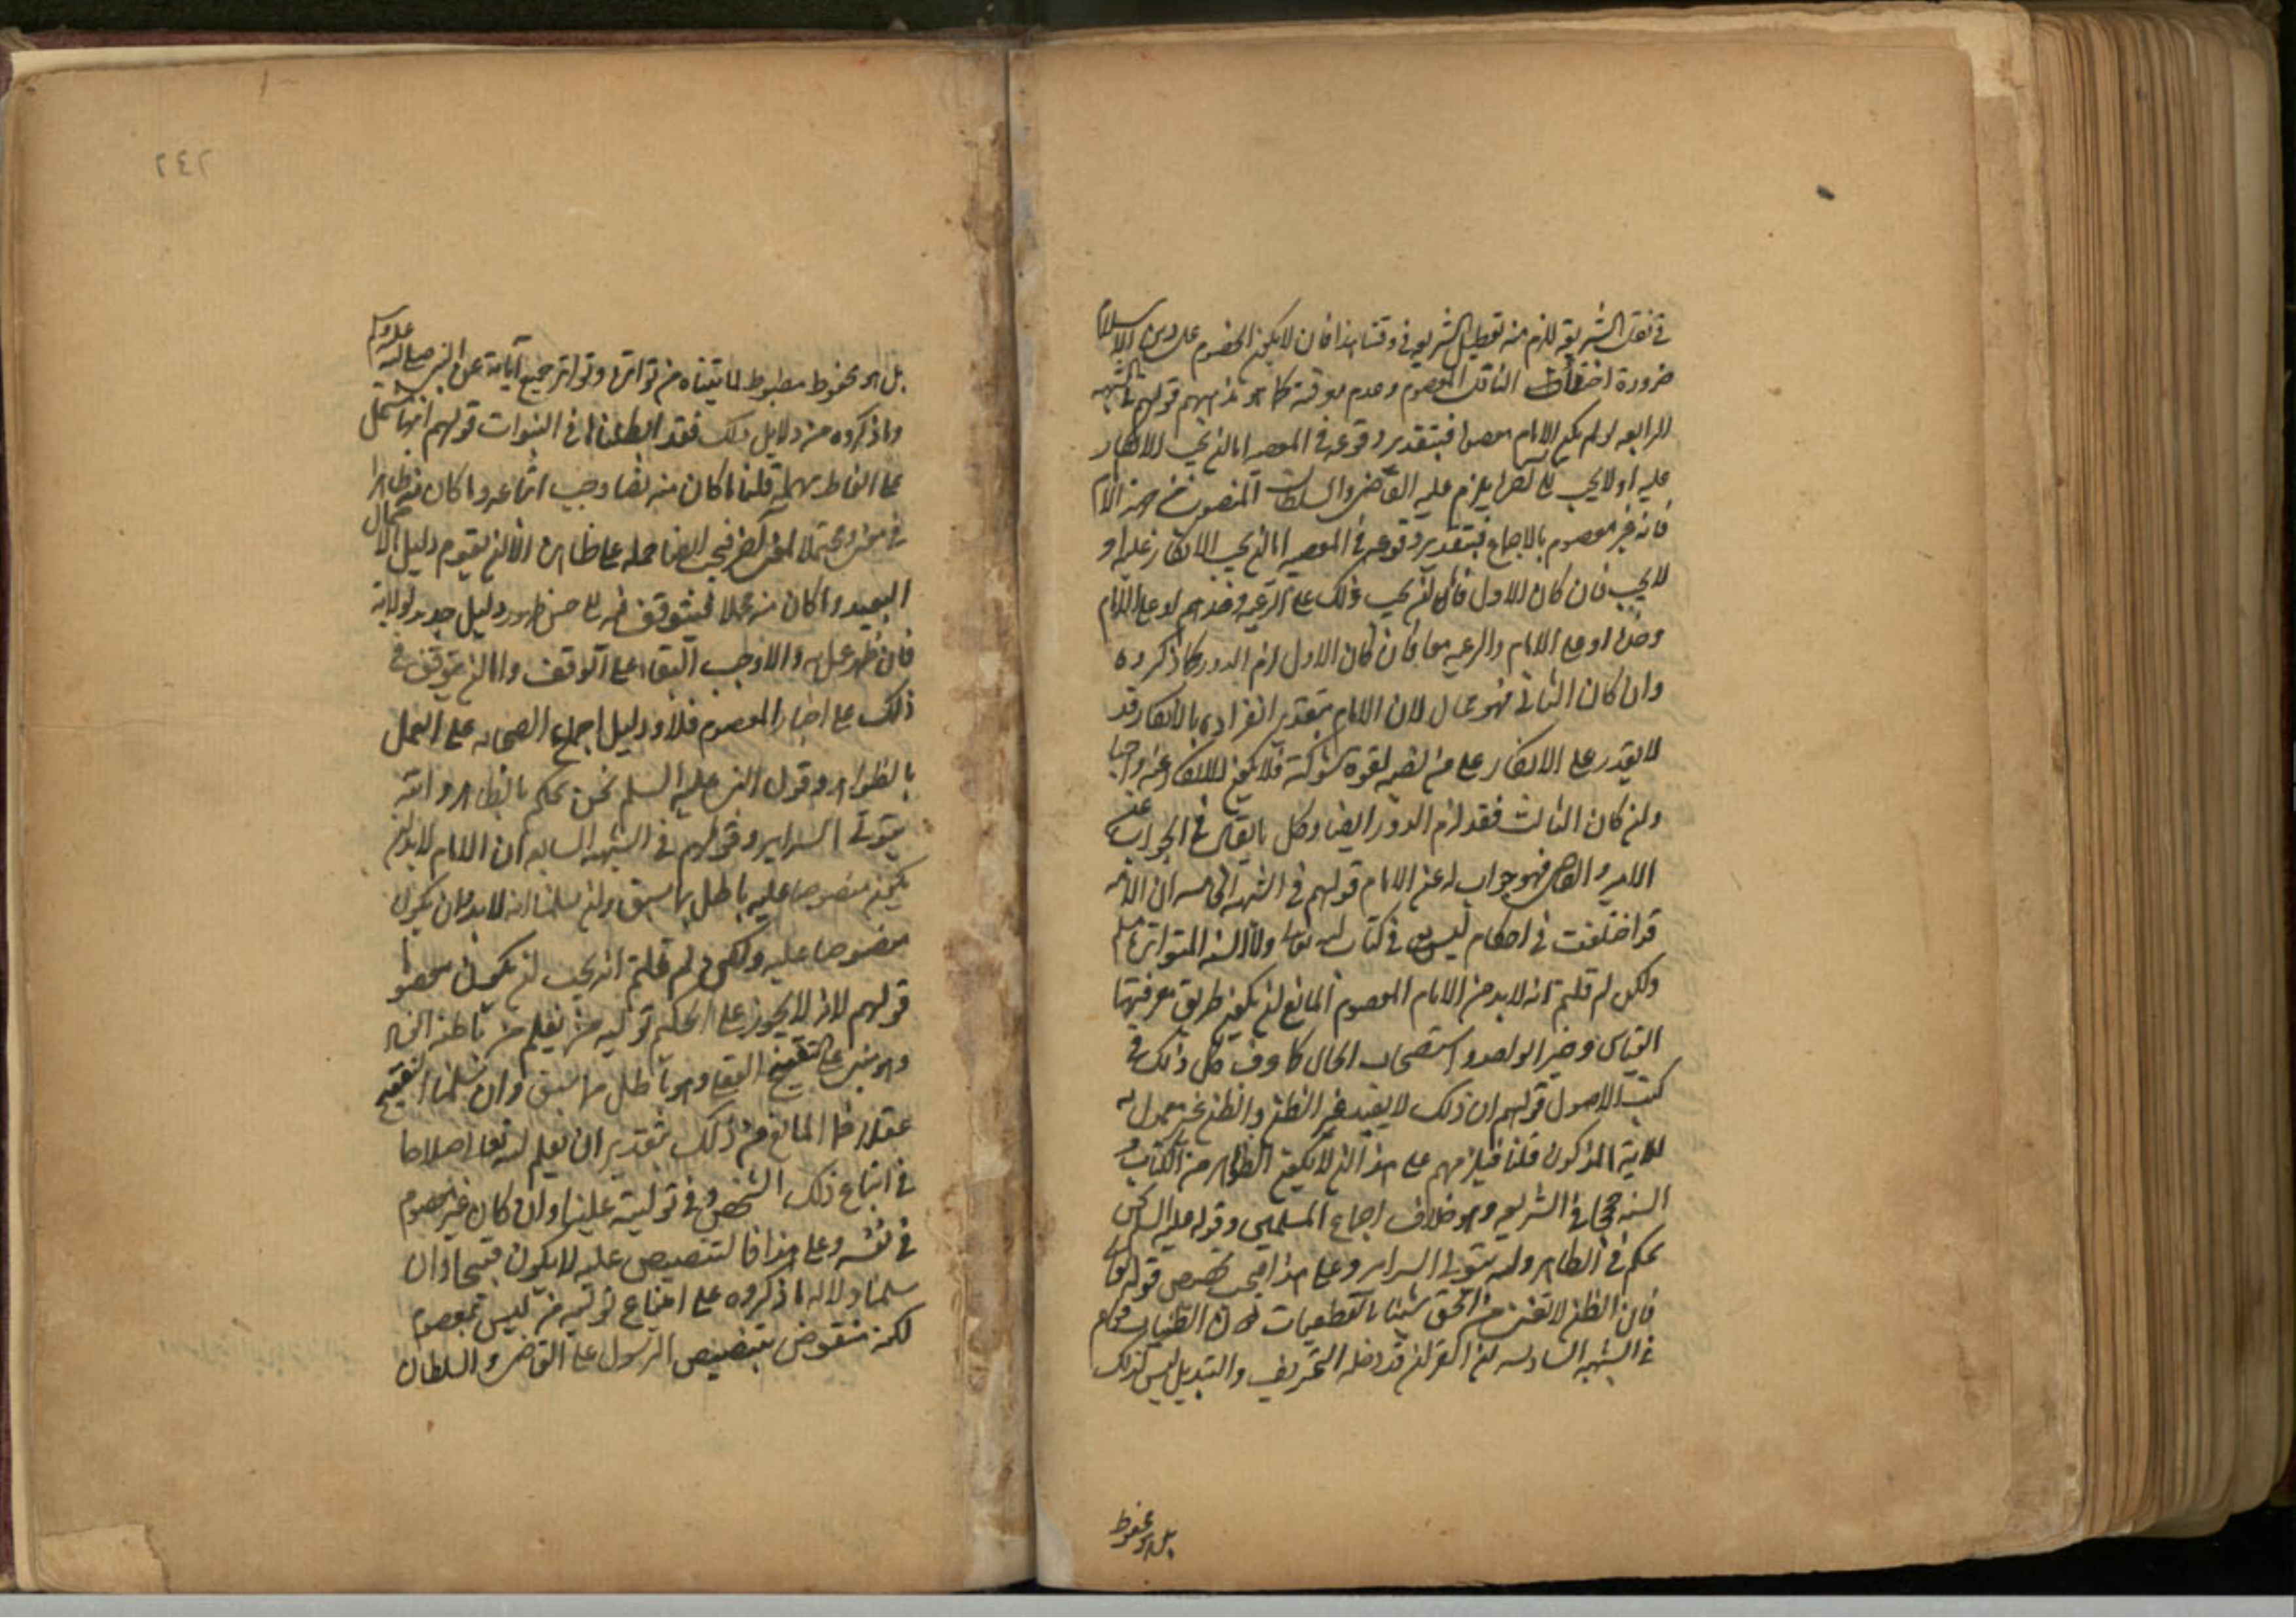 في نقل الشريعة للزم منه تعطيل الشريعة في وقتنا هذا فان لا يكون الخصوم على دين الاسلام
ضرورة اختفاء الناقل المعصوم وعدم معرفته كما هو مذهبهم قولهم في الشبهه
الرابعه لو لم يكن الامام معصوما فبتقدير وقوعه في المعصيه اما ان يجب الانكار
عليه او لا يجب يلزم عليه القاضي والسلطان المنصوب من جهة الامام
فانه غير معصوم بالاجماع فبتقدير وقوعه في المعصيه اما ان يجب الانكار عليه او
لا يجب فان كان الاول فاما ان يجب ذلك على الرعيه وحدهم او على الامام
وحده او على الامام والرعيه معا فان كان الاول لزم الدور كما ذكروه
وان كان الثاني فهو محال لان الامام بتقدير انفراده بالانكار قد
لا يقدر على الانكار على من نصبه لقوة شوكته فلا يكون الانكار عنه واجبا
وان كان الثالث فقد لزم الدور ايضا وكل ما يقال في الجواب عن
الامير والقاضي فهو جواب له عن الامام قولهم في الشبهه الخامسه ان الامه
قد اختلفت في احكام ليس في كتاب الله تعالى ولا السنه المتواتره مسلم
ولكن لم قلتم انه لا بد من الامام المعصوم المانع ان يكون طريق معرفتها
القياس وخبر الواحد واستصحاب الحال كما عرف كل ذلك في
كتب الاصول قولهم ان ذلك لا يفيد غير الظن والظن غير معمول به
للاية المذكوره قلنا فيلزمهم على هذا ان لا يكون الظواهر من الكتاب و
السنه حجة في الشريعه وهو خلاف اجماع المسلمين وقوله عليه السلم نحن
نحكم في الظاهر والله يتولى السراير وعلى هذا فيجب تخصيص قوله تعالى
فان الظن لا يغني من الحق شيئا بالقطعيات دون الظنيات قولهم
في الشبهه السادسه ان القران قد دخله التحريف والتبديل ليس كذلك
بل هو محفوظ
٢٤٢
بل هو محفوظ مضبوط لما بيناه من تواتره وتواتر جميع آياته عن النبي صلى الله عليه وسلم
وما ذكروه من دلايل ذلك فقد ابطلناها في النبوات قولهم انها تشتمل
على الفاظ مهملة قلنا ما كان منه نصا وجب اتباعه وما كان منه ظاهرا
في معنى ومحتملا لمعنى اخر فيجب ايضا حمله على ظاهره الا ان يقوم دليل الاحتمال
البعيد وما كان منه مجملا فيتوقف فيه الى حين ظهور دليل مدلوله
فان ظهر عمل به والا وجب البقاء على التوقف واما ان يتوقف في
ذلك على اخبار المعصوم فلا ودليله اجماع الصحابه على العمل
بالظواهر وقول النبي عليه السلم نحن نحكم بالظاهر والله
يتولى السراير وقولهم في الشبهه السابعه ان الامام لا بد ان
يكون منصوصا عليه باطل بما سبق وان سلمنا انه لا بد وان يكون
منصوصا عليه ولكن لم قلتم انه يجب ان يكون معصوما
قولهم لانه لا يجوز على الحكيم توليه من يعلم من باطنه
وهو مبني على التقبيح العقلي وهو باطل بما سبق وان سلمنا التقبيح
عقلا فما المانع من ذلك بتقدير ان يعلم الله تعالى صلاحا
في اتباع ذلك الشخص وفي توليته علينا وان كان غير معصوم
في نفسه وعلى هذا فالتنصيص عليه لا يكون قبيحا وان
سلمنا دلاله ما ذكروه على امتناع توليه من ليس بمعصوم
لكنه منقوض بتنصيص الرسول على القاضي والسلطان